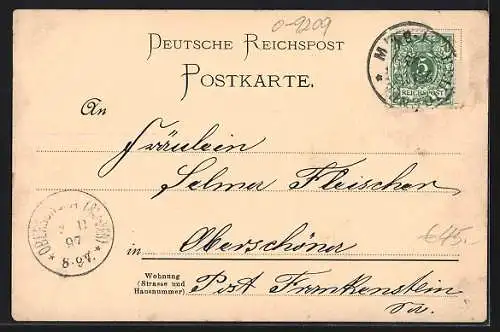 0-9209
DEUTSCHE REICHSPOST
POSTKARTE.
5
REICHSPOST
An
Fräulein
Selma Fleischer
in Oberschöna
€45.
97
8-9V.
Wohnung
(Strasse und
Hausnummer)
Post Frankenstein